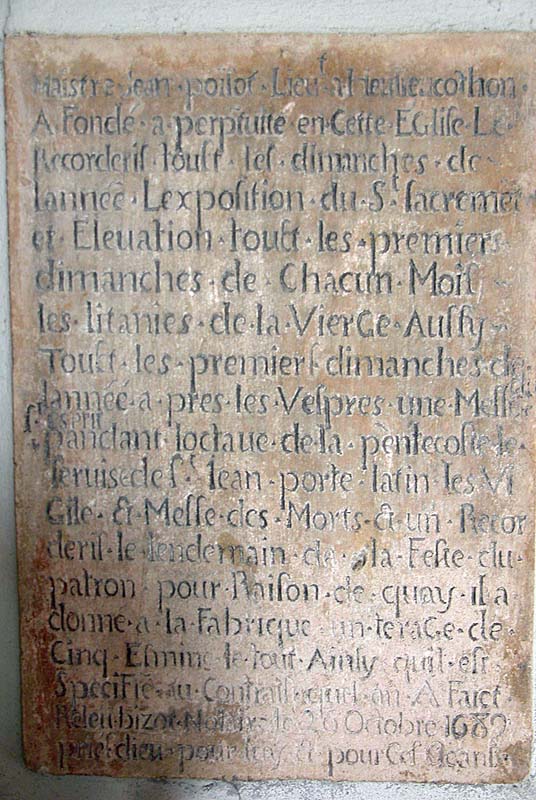 Maistre Jean poitot Lieu.t A
A Fondé · a perptuite en Cette EGlise Le
Recorderis toust · les dimanches · de
lanneé · Lexposition · du · S.t sacremēt
et · Eleuation · toust · les · premiers
dimanches · de · Chacun · Mois
les · litanies · de · la · VierGe · Aussy
Toust · les · premiers · dimanches · de
lanneé · a · pres · les · Vespres · une · Messe · du
s.t Esprit
pandant · loctaue · de · la · pentecoste · le ·
seruise de S.t Jean · porte · latin · les Vi
Gile · & · Messe · des · Morts · & un · Recor
deris · le · lendemain · de · la · Feste · du ·
patron · pour · Raison · de · quoy · il a
donné · a · la · Fabrique · un · teraGe · de ·
Cinq · Esmine · le · tout · Ainsy · quil · est ·
Specifié · au · Contrast · quel · en · A Faict
Releu · bizot · Notaire · le · 26 Octobre 1689
priés · dieu · pour · luy · & · pour Ces